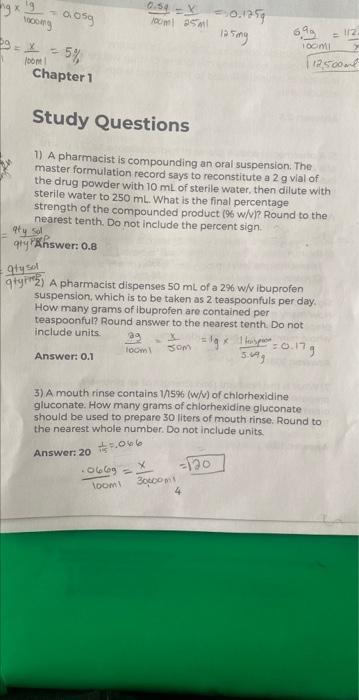 1g
1000mg
= 0.05g
0.5g = x = 0.125g
100ml 25ml
125mg
100ml
12,500ml
x = 5%
100ml
Chapter 1
Study Questions
1) A pharmacist is compounding an oral suspension. The
master formulation record says to reconstitute a 2 g vial of
the drug powder with 10 mL of sterile water, then dilute with
sterile water to 250 mL. What is the final percentage
strength of the compounded product (% w/v)? Round to the
nearest tenth. Do not include the percent sign.
= qty sol
Answer: 0.8
= qty sol
2) A pharmacist dispenses 50 mL of a 2% w/v ibuprofen
suspension, which is to be taken as 2 teaspoonfuls per day.
How many grams of ibuprofen are contained per
teaspoonful? Round answer to the nearest tenth. Do not
include units.
2g = x = 1g x = 0.17g
100ml 50m
Answer: 0.1
3) A mouth rinse contains 1/15% (w/v) of chlorhexidine
gluconate. How many grams of chlorhexidine gluconate
should be used to prepare 30 liters of mouth rinse. Round to
the nearest whole number. Do not include units.
Answer: 20 1/15 = .066
.066g = x = 20
100ml 30,000ml
4